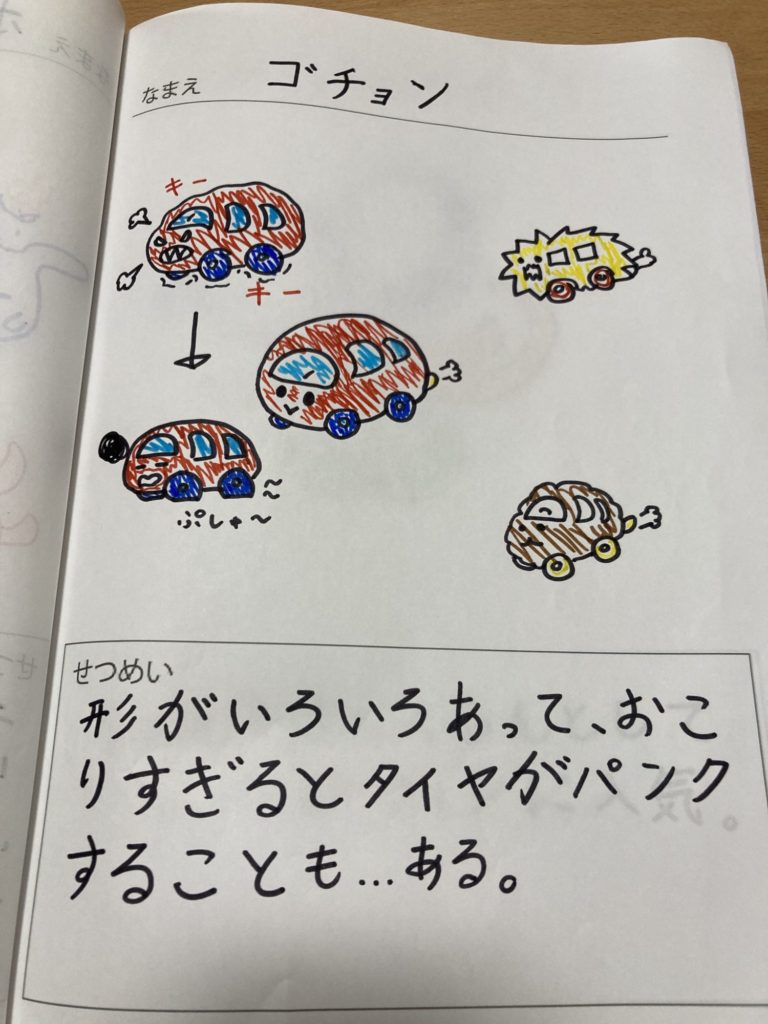 なまえ ゴチョン
キー
キー
ぷしゅ～
せつめい
形がいろいろあって、おこ
りすぎるとタイヤがパンク
することも…ある。